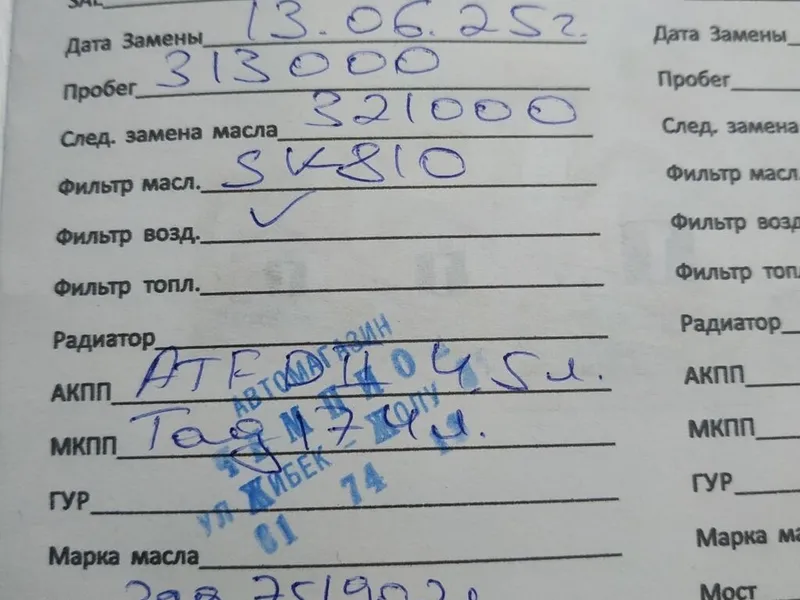 SAE
Дата Замены 13.06.25г.
Дата Замены
Пробег 313000
Пробег
След. замена масла 321000
След. замена
Фильтр масл. SK810
Фильтр масл
Фильтр возд. ✓
Фильтр возд
Фильтр топл.
Фильтр топл
Радиатор
Радиатор
АКПП ATF DII 4,5л.
АКПП
МКПП Tad 17 4л.
МКПП
ГУР
ГУР
Марка масла
Марка ма
Мост
АВТОМАГАЗИН
УЛ ЖИБЕК - ЖОЛУ
61 74